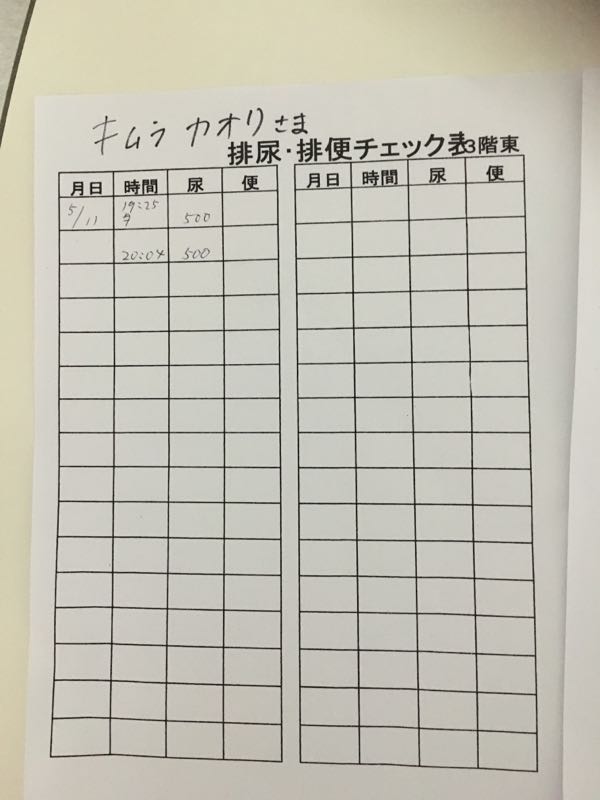 キムラ カオリさま
排尿・排便チェック表 3階東
月日 時間 尿 便 月日 時間 尿 便
5/11 19:25 500
夕
20:04 500